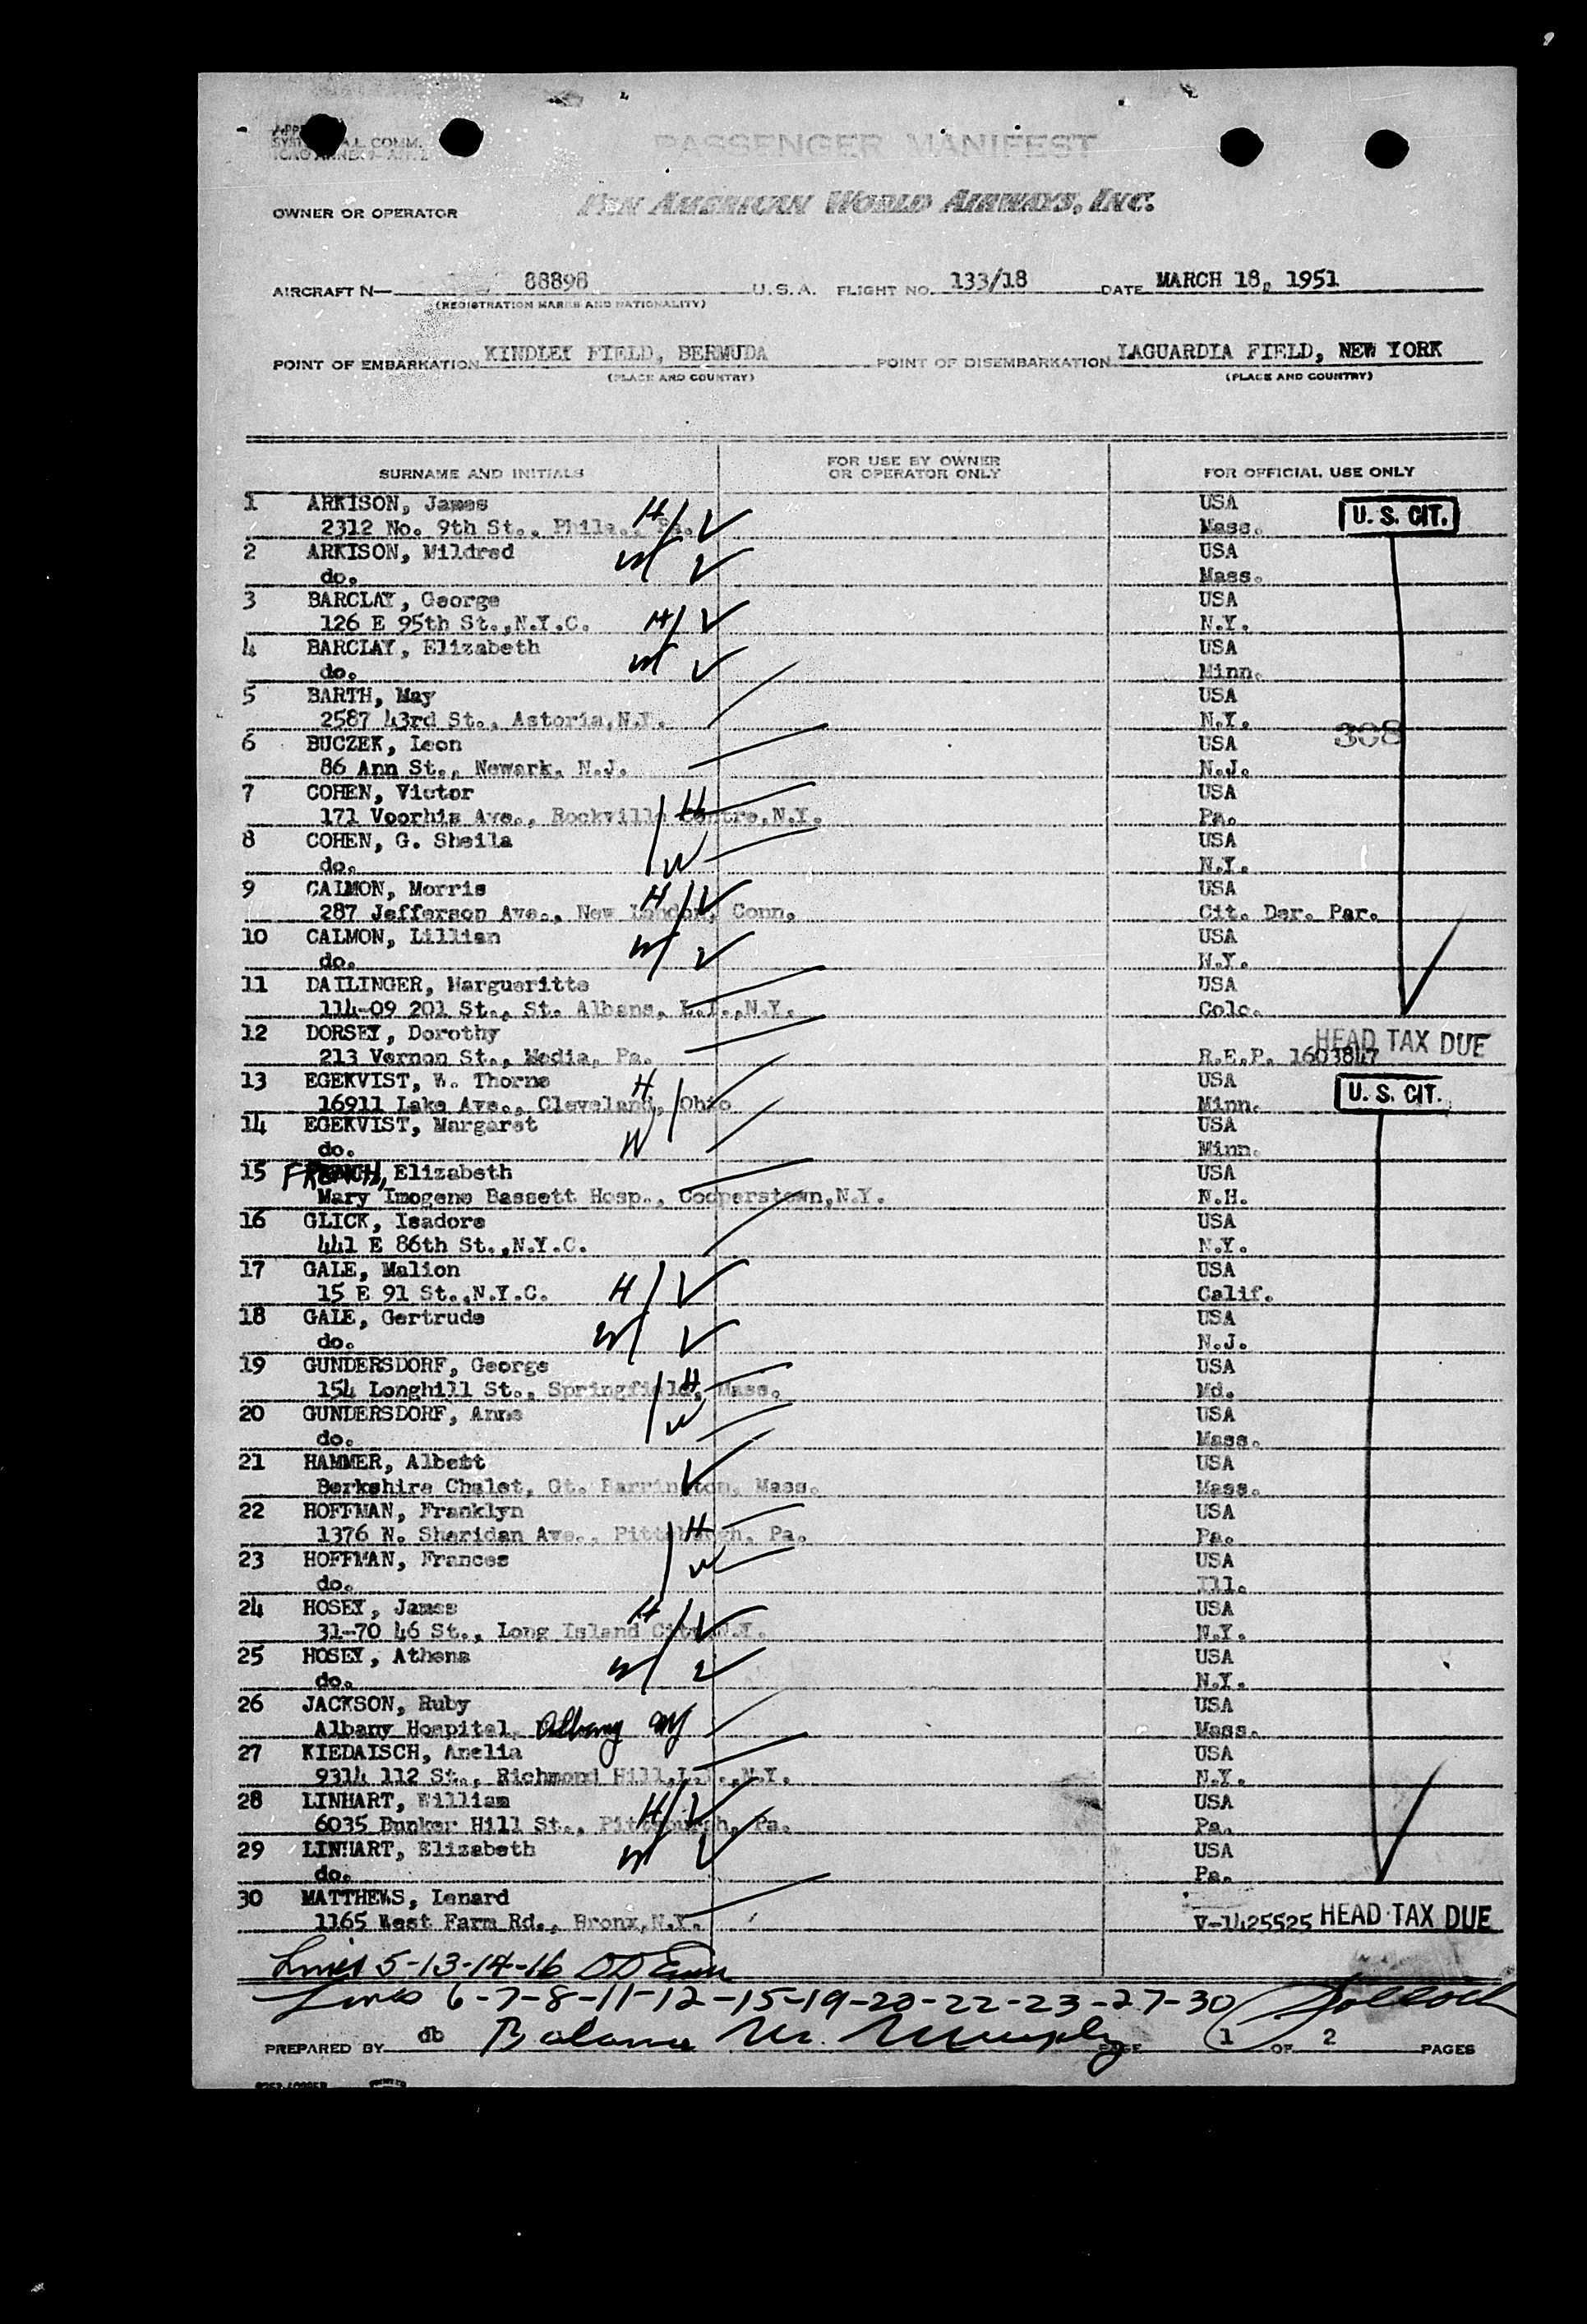 PASSENGER MANIFEST
PAN AMERICAN WORLD AIRWAYS, INC.
OWNER OR OPERATOR
AIRCRAFT N— 88898 U.S.A. FLIGHT NO. 133/18 DATE MARCH 18, 1951
(REGISTRATION MARKS AND NATIONALITY)
POINT OF EMBARKATION KINDLEY FIELD, BERMUDA POINT OF DISEMBARKATION LAGUARDIA FIELD, NEW YORK
(PLACE AND COUNTRY) (PLACE AND COUNTRY)
SURNAME AND INITIALS FOR USE BY OWNER OR OPERATOR ONLY FOR OFFICIAL USE ONLY
1 ARKISON, James USA U. S. CIT.
2312 No. 9th St., Phila., Pa. H Mass.
2 ARKISON, Mildred USA
do. W Mass.
3 BARCLAY, George USA
126 E 95th St.,N.Y.C. H N.Y.
4 BARCLAY, Elizabeth USA
do. W Minn.
5 BARTH, May USA
2587 43rd St., Astoria,N.Y. N.Y. 308
6 BUCZEK, Leon USA
86 Ann St., Newark, N.J. N.J.
7 COHEN, Victor USA
171 Voorhis Ave., Rockville Centre,N.Y. H Pa.
8 COHEN, G. Sheila USA
do. W N.Y.
9 CALMON, Morris USA
287 Jefferson Ave., New London, Conn. H Cit. Der. Par.
10 CALMON, Lillian USA
do. W N.Y.
11 DAILINGER, Margueritte USA
114-09 201 St., St. Albans, L.I.,N.Y. Colo.
12 DORSEY, Dorothy HEAD TAX DUE
213 Vernon St., Media, Pa. R.E.P. 1603847
13 EGEKVIST, W. Thorne USA U. S. CIT.
16911 Lake Ave., Cleveland, Ohio H Minn.
14 EGEKVIST, Margaret USA
do. W Minn.
15 FRENCH, Elizabeth USA
Mary Imogene Bassett Hosp., Cooperstown,N.Y. N.H.
16 GLICK, Isadore USA
441 E 86th St.,N.Y.C. N.Y.
17 GALE, Malion USA
15 E 91 St.,N.Y.C. H Calif.
18 GALE, Gertrude USA
do. W N.J.
19 GUNDERSDORF, George USA
154 Longhill St., Springfield, Mass. H Md.
20 GUNDERSDORF, Anne USA
do. W Mass.
21 HAMMER, Albert USA
Berkshire Chalet, Gt. Barrington, Mass. Mass.
22 HOFFMAN, Franklyn USA
1376 N. Sheridan Ave., Pittsburgh, Pa. H Pa.
23 HOFFMAN, Frances USA
do. W Ill.
24 HOSEY, James USA
31-70 46 St., Long Island City,N.Y. H N.Y.
25 HOSEY, Athena USA
do. W N.Y.
26 JACKSON, Ruby USA
Albany Hospital, Albany NY Mass.
27 KIEDAISCH, Anelia USA
9314 112 St., Richmond Hill,L.I.,N.Y. N.Y.
28 LINHART, William USA
6035 Bunker Hill St., Pittsburgh, Pa. H Pa.
29 LINHART, Elizabeth USA
do. W Pa.
30 MATTHEWS, Lenard
1165 West Farm Rd., Bronx,N.Y. V-1425525 HEAD TAX DUE
Lines 5-13-14-16
Lines 6-7-8-11-12-15-19-20-22-23-27-30
PREPARED BY db Balance Murphy PAGE 1 OF 2 PAGES